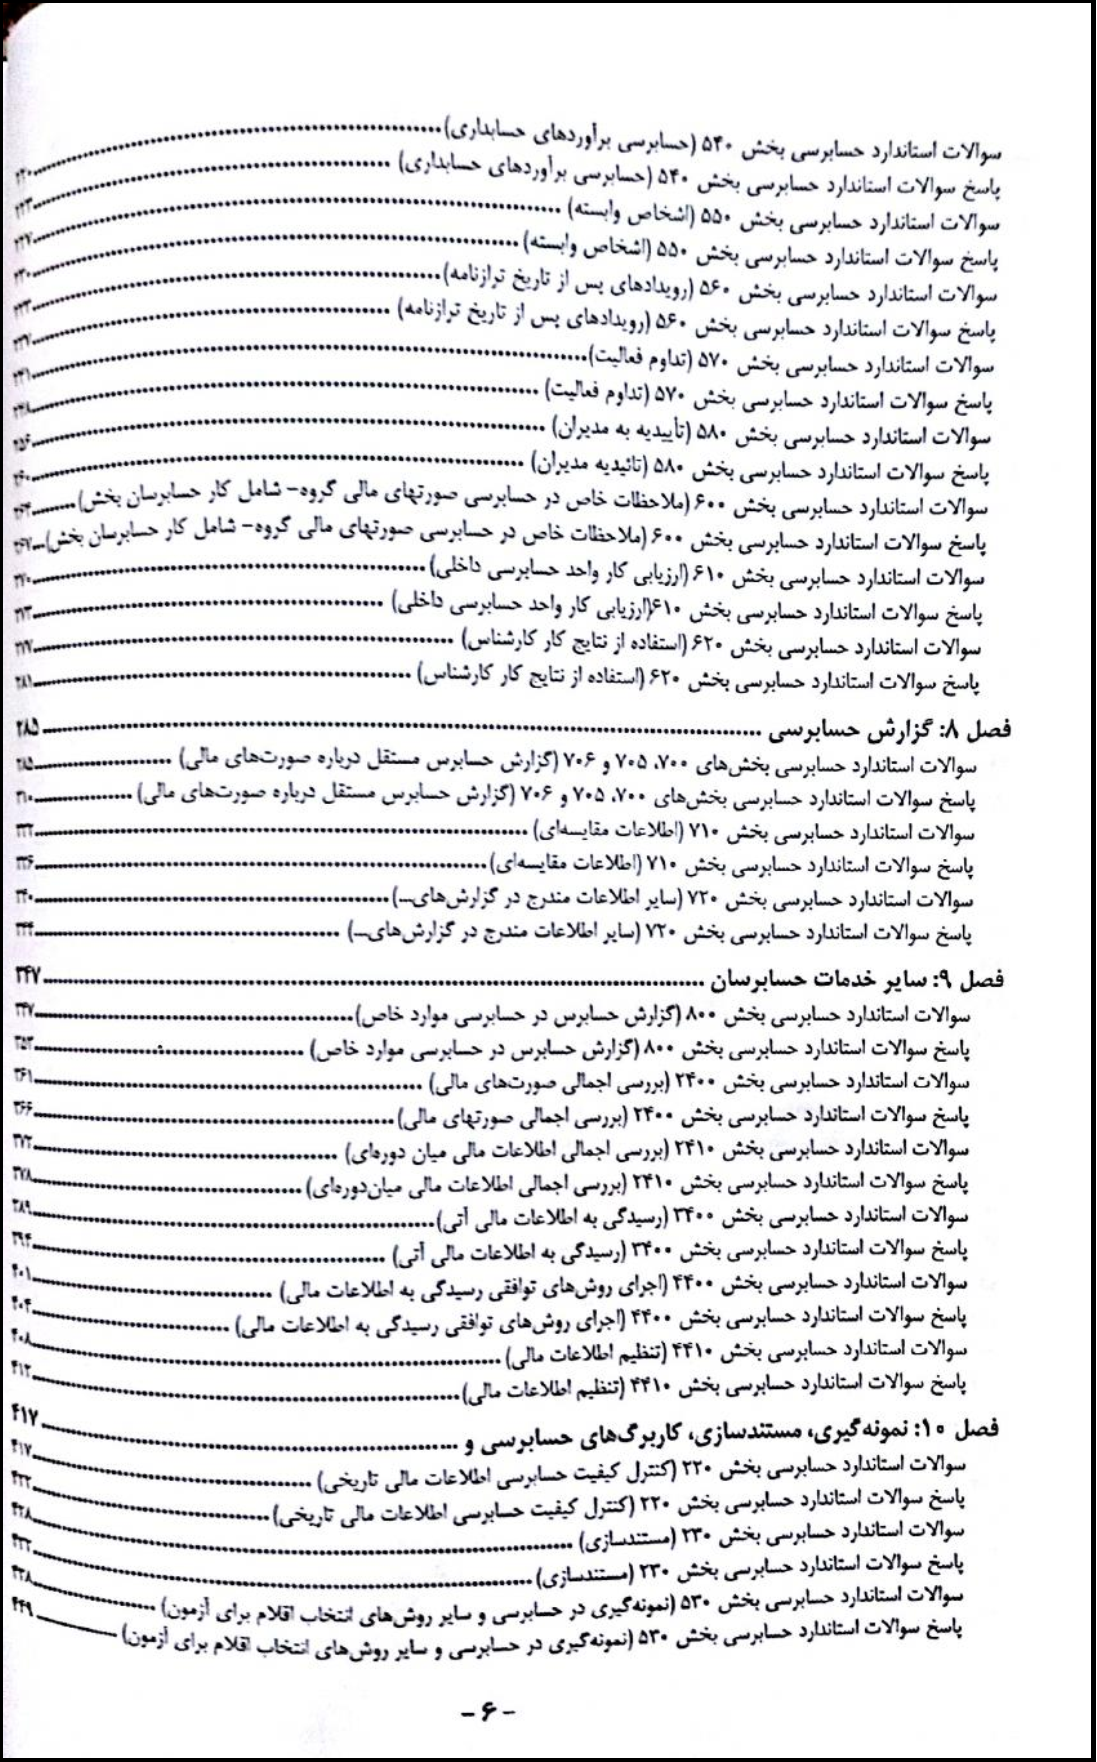 سوالات استاندارد حسابرسی بخش ۵۴۰ (حسابرسی برآوردهای حسابداری)
پاسخ سوالات استاندارد حسابرسی بخش ۵۴۰ (حسابرسی برآوردهای حسابداری)
سوالات استاندارد حسابرسی بخش ۵۵۰ (اشخاص وابسته)
پاسخ سوالات استاندارد حسابرسی بخش ۵۵۰ (اشخاص وابسته)
سوالات استاندارد حسابرسی بخش ۵۶۰ (رویدادهای پس از تاریخ ترازنامه)
پاسخ سوالات استاندارد حسابرسی بخش ۵۶۰ (رویدادهای پس از تاریخ ترازنامه)
سوالات استاندارد حسابرسی بخش ۵۷۰ (تداوم فعالیت)
پاسخ سوالات استاندارد حسابرسی بخش ۵۷۰ (تداوم فعالیت)
سوالات استاندارد حسابرسی بخش ۵۸۰ (تأییدیه به مدیران) ۲۵۶
پاسخ سوالات استاندارد حسابرسی بخش ۵۸۰ (تائیدیه مدیران) ۲۶۰
سوالات استاندارد حسابرسی بخش ۶۰۰ (ملاحظات خاص در حسابرسی صورتهای مالی گروه- شامل کار حسابرسان بخش) ۲۶۴
پاسخ سوالات استاندارد حسابرسی بخش ۶۰۰ (ملاحظات خاص در حسابرسی صورتهای مالی گروه- شامل کار حسابرسان بخش) ۲۶۷
سوالات استاندارد حسابرسی بخش ۶۱۰ (ارزیابی کار واحد حسابرسی داخلی) ۲۷۰
پاسخ سوالات استاندارد حسابرسی بخش ۶۱۰(ارزیابی کار واحد حسابرسی داخلی) ۲۷۳
سوالات استاندارد حسابرسی بخش ۶۲۰ (استفاده از نتایج کار کارشناس) ۲۷۷
پاسخ سوالات استاندارد حسابرسی بخش ۶۲۰ (استفاده از نتایج کار کارشناس) ۲۸۱
فصل ۸: گزارش حسابرسی ۲۸۵
سوالات استاندارد حسابرسی بخش‌های ۷۰۰، ۷۰۵ و ۷۰۶ (گزارش حسابرس مستقل درباره صورت‌های مالی) ۲۸۵
پاسخ سوالات استاندارد حسابرسی بخش‌های ۷۰۰، ۷۰۵ و ۷۰۶ (گزارش حسابرس مستقل درباره صورت‌های مالی) ۳۱۰
سوالات استاندارد حسابرسی بخش ۷۱۰ (اطلاعات مقایسه‌ای)
پاسخ سوالات استاندارد حسابرسی بخش ۷۱۰ (اطلاعات مقایسه‌ای) ۳۳۶
سوالات استاندارد حسابرسی بخش ۷۲۰ (سایر اطلاعات مندرج در گزارش‌های...) ۳۴۰
پاسخ سوالات استاندارد حسابرسی بخش ۷۲۰ (سایر اطلاعات مندرج در گزارش‌های...) ۳۴۴
فصل ۹: سایر خدمات حسابرسان ۳۴۷
سوالات استاندارد حسابرسی بخش ۸۰۰ (گزارش حسابرس در حسابرسی موارد خاص) ۳۴۷
پاسخ سوالات استاندارد حسابرسی بخش ۸۰۰ (گزارش حسابرس در حسابرسی موارد خاص) ۳۵۳
سوالات استاندارد حسابرسی بخش ۲۴۰۰ (بررسی اجمالی صورت‌های مالی) ۳۶۱
پاسخ سوالات استاندارد حسابرسی بخش ۲۴۰۰ (بررسی اجمالی صورتهای مالی) ۳۶۶
سوالات استاندارد حسابرسی بخش ۲۴۱۰ (بررسی اجمالی اطلاعات مالی میان دوره‌ای) ۳۷۲
پاسخ سوالات استاندارد حسابرسی بخش ۲۴۱۰ (بررسی اجمالی اطلاعات مالی میان‌دوره‌ای) ۳۷۸
سوالات استاندارد حسابرسی بخش ۳۴۰۰ (رسیدگی به اطلاعات مالی آتی) ۳۸۹
پاسخ سوالات استاندارد حسابرسی بخش ۳۴۰۰ (رسیدگی به اطلاعات مالی آتی) ۳۹۴
سوالات استاندارد حسابرسی بخش ۴۴۰۰ (اجرای روش‌های توافقی رسیدگی به اطلاعات مالی) ۴۰۱
پاسخ سوالات استاندارد حسابرسی بخش ۴۴۰۰ (اجرای روش‌های توافقی رسیدگی به اطلاعات مالی) ۴۰۴
سوالات استاندارد حسابرسی بخش ۴۴۱۰ (تنظیم اطلاعات مالی) ۴۰۸
پاسخ سوالات استاندارد حسابرسی بخش ۴۴۱۰ (تنظیم اطلاعات مالی) ۴۱۲
فصل ۱۰: نمونه‌گیری، مستندسازی، کاربرگ‌های حسابرسی و ... ۴۱۷
سوالات استاندارد حسابرسی بخش ۲۲۰ (کنترل کیفیت حسابرسی اطلاعات مالی تاریخی) ۴۱۷
پاسخ سوالات استاندارد حسابرسی بخش ۲۲۰ (کنترل کیفیت حسابرسی اطلاعات مالی تاریخی) ۴۲۲
سوالات استاندارد حسابرسی بخش ۲۳۰ (مستندسازی) ۴۲۸
پاسخ سوالات استاندارد حسابرسی بخش ۲۳۰ (مستندسازی)
سوالات استاندارد حسابرسی بخش ۵۳۰ (نمونه‌گیری در حسابرسی و سایر روش‌های انتخاب اقلام برای آزمون)
پاسخ سوالات استاندارد حسابرسی بخش ۵۳۰ (نمونه‌گیری در حسابرسی و سایر روش‌های انتخاب اقلام برای آزمون) ۴۴۹
- ۶ -